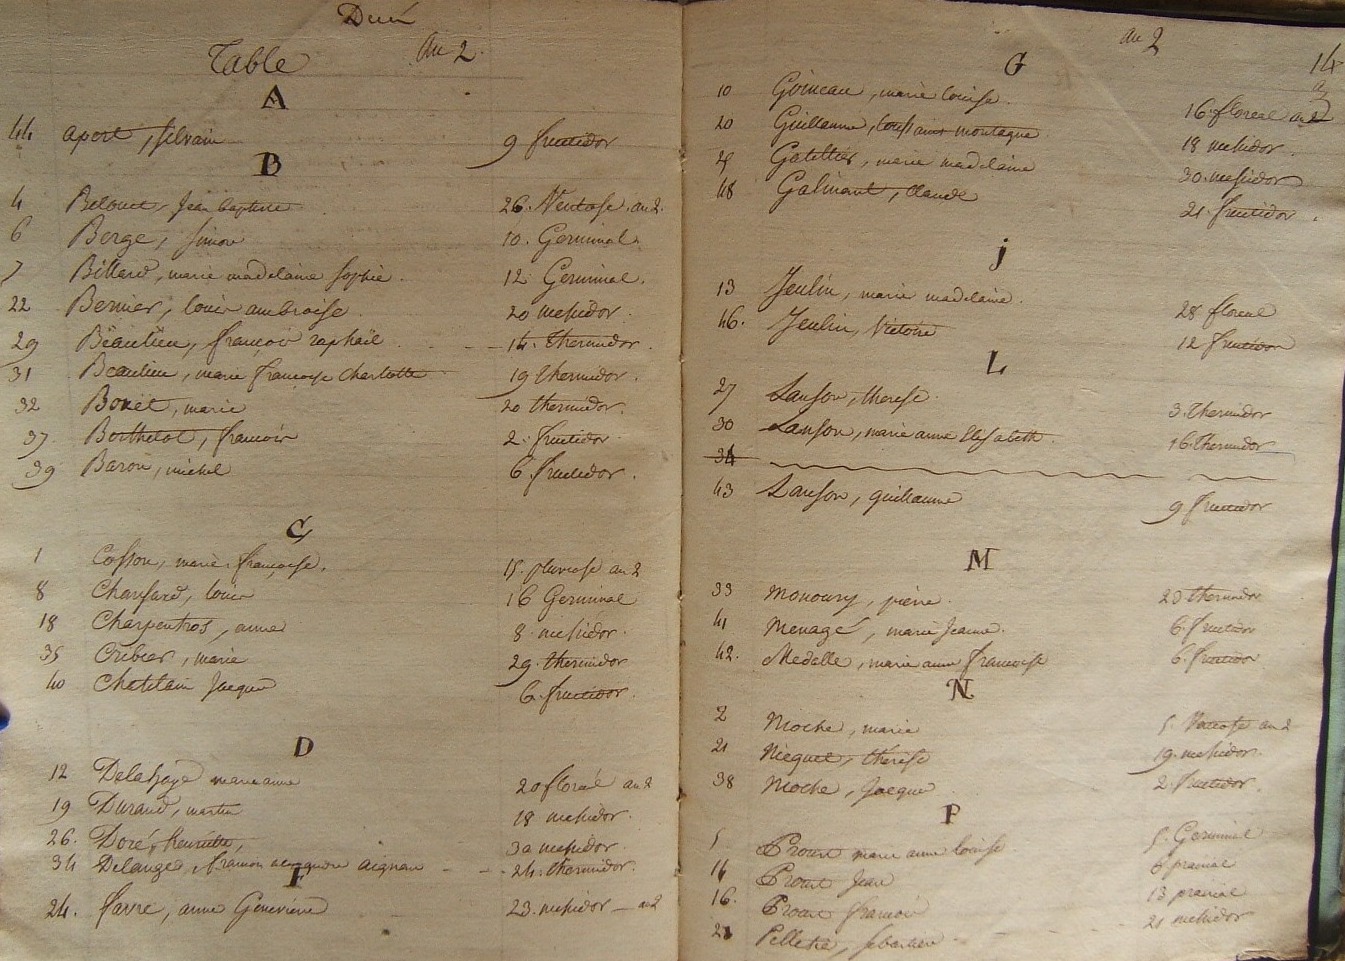 Table au 2.
A
44 apert, silvain 9 fructidor
B
4 Belouet, Jean baptiste 26. Ventose. an 2.
6 Berge, simon 10. Germinal.
7 Billard, marie madelaine sophie. 12 Germinal.
22 Bernier, louis ambroise. 20 messidor.
29 Beaulieu, françois raphaël 14. thermidor.
31 Beaulieu, marie françoise charlotte 19 thermidor.
32 Bouet, marie 20 thermidor.
37. Berthelot, françois 2. fructidor.
39 Baron, michel 6. fructidor.
C
1 Cosson, marie françoise. 15. pluviose an 2
8 Chaufard, louis 16 Germinal
18 Charpentros, anne 8. messidor.
35 Cribier, marie 29. thermidor
40 Chatelain Jacque 6. fructidor.
D
12 Delahaye marie anne 20 floréal an 2
19 Durand, martin 18 messidor.
26. Doré, henriette, 30 messidor.
34 Delange, aignan 24. thermidor.
F
24. favre, anne Genevieve 23. messidor an 2
au 2
14
G
10 Goineau, marie louise. 16. floreal an 2
20 Guillaume, montagne 18 messidor.
25 Gatellier, marie madelaine 30. messidor
48 Galmant, claude 21. fructidor.
j
13 Jeulin, marie madelaine. 28 floreal
46. Jeulin, Victoire 12 fructidor
L
27 Lanson, therese. 3. Thermidor
30 Lanson, marie anne Elisabeth. 16. Thermidor
34
43 Lanson, guillaume 9 fructidor
M
33 Monoury, pierre. 23 thermidor
41 Menagé, marie Jeanne. 6. fructidor
42. Medelle, marie anne françoise 6. fructidor
N
2 Nioche, marie 5. Ventose an 2
21 Nicquet, therese 19. messidor.
38 Nioche, Jacque 2. fructidor.
P
5 Proust marie anne louise 5. Germinal
14 Proust Jean 6 prairial
16. Proust françois 13 prairial
23 Pelletié, sebastien 21 messidor